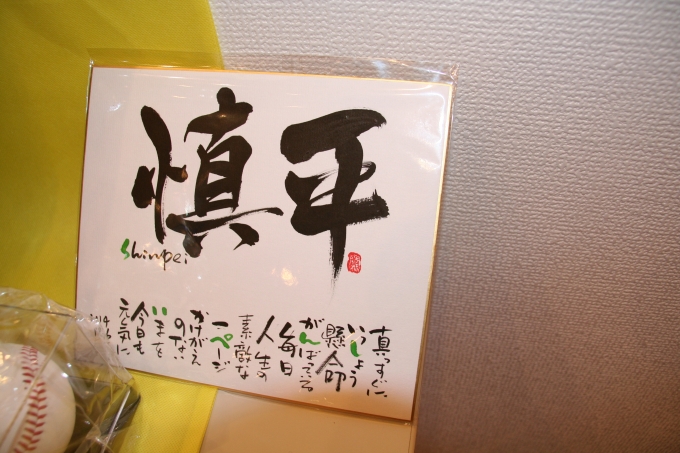 慎平
Shinpei
真っすぐに
いっしょう
懸命
がんばってる
毎日
人生の
素敵な
一ページ
かけがえ
のない
いまを
今日も
元気に